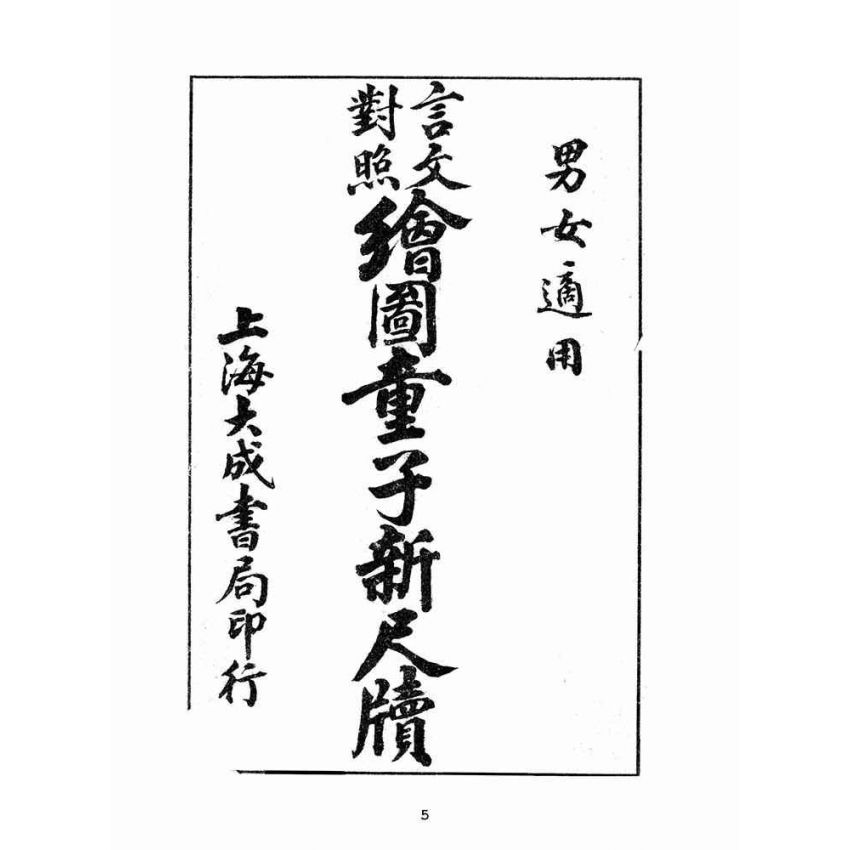 男女適用
言文
對照
繪圖童子新尺牘
上海大成書局印行
5